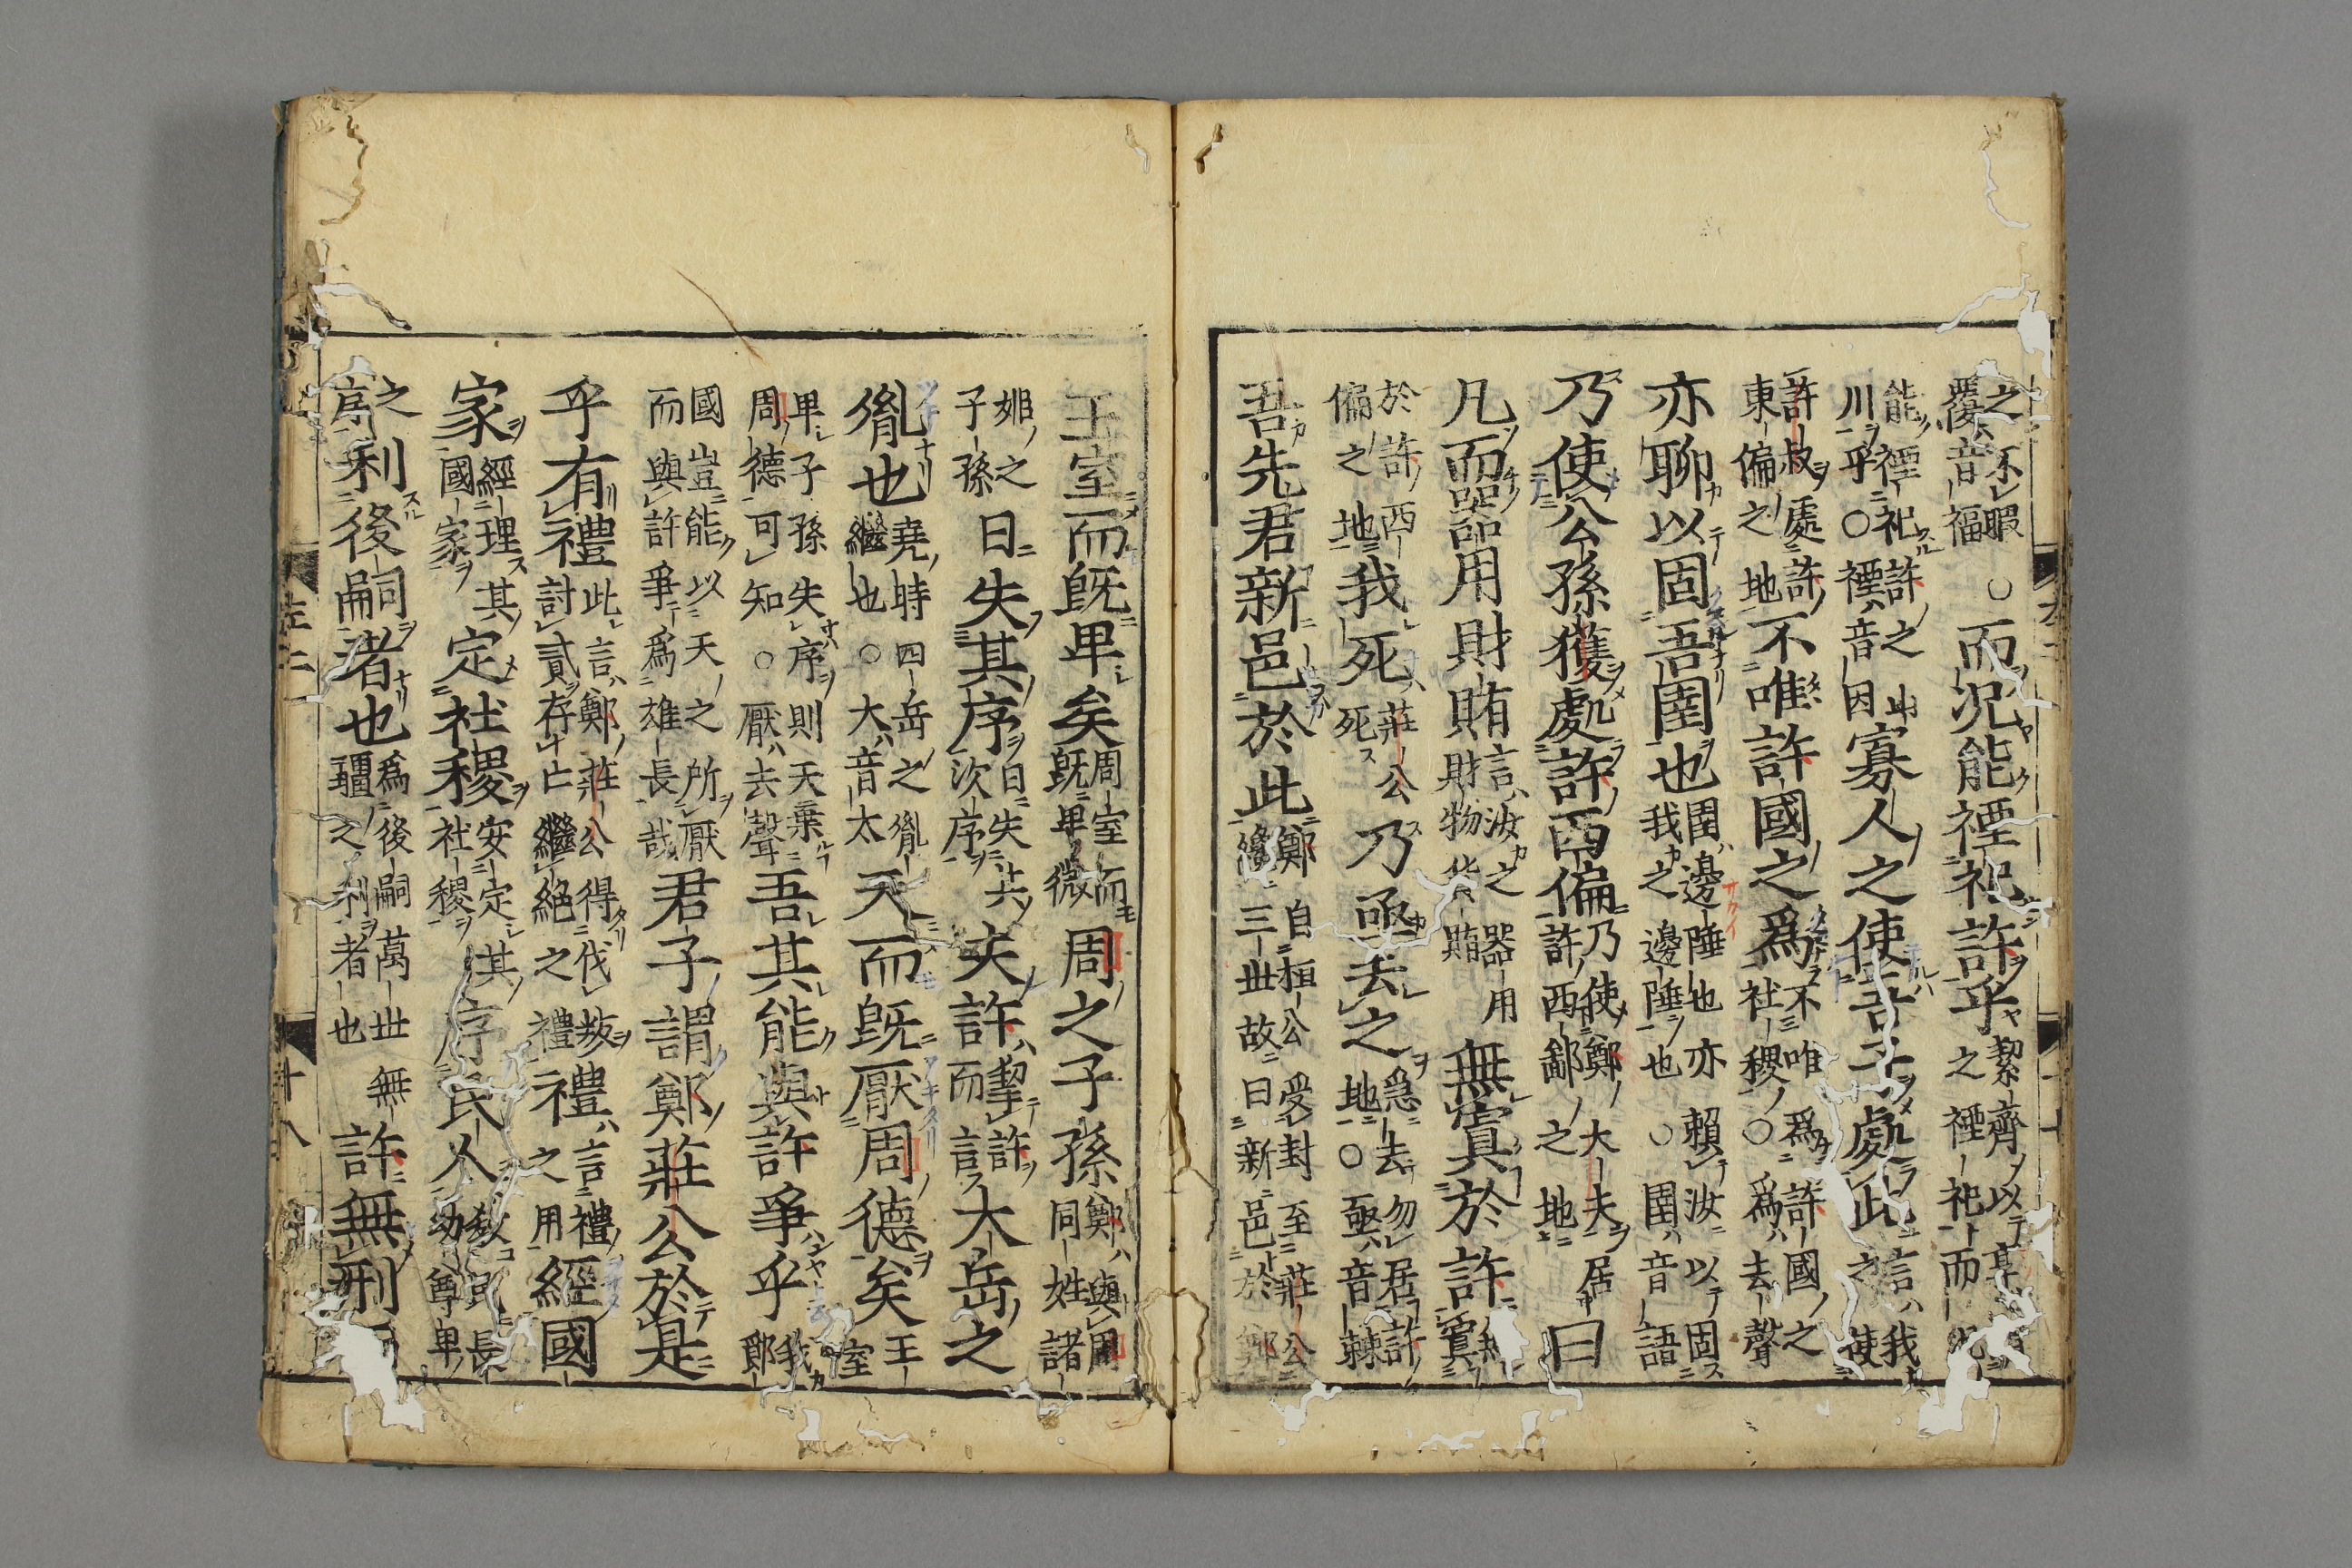 之不暇 覆音福 ○而況能禋祀許乎絜齊以享之禋祀而況
能禋祀許之山川乎○禋音因寡人之使吾子處此言我之使
許叔處許東偏之地不唯許國之爲不唯爲許國之社稷○爲去聲
亦聊以固吾圉也圉邊陲也亦賴汝以固我之邊陲也○圉音語
乃使公孫獲處許西偏乃使鄭大夫居許西鄙之地曰
凡而器用財賄言汝之器用財物貨賄無寘於許無寘
於許西偏之地我死莊公死乃亟去之急去勿居許地○亟音棘
吾先君新邑於此鄭自桓公受封至莊公緣三世故曰新邑於鄭
王室而旣卑矣周室而旣卑微周之子孫鄭與周同姓諸
姬之子孫日失其序日失其次序夫許絜許而言大岳之
胤也堯時四岳之胤繼也○大音太天而旣厭周德矣王室
卑子孫失序則天棄周德可知○厭去聲吾其能與許爭乎我鄭
國豈能以天之所厭而與許爭爲雄長哉君子謂鄭莊公於是
乎有禮此言鄭莊公得伐叛討貳存亡繼絕之禮禮言禮之用經國
家經理其國家定社稷安定其社稷序民人敘民長幼尊卑
之序利後嗣者也爲後嗣萬世無疆之利者也許無刑而
左二
十八